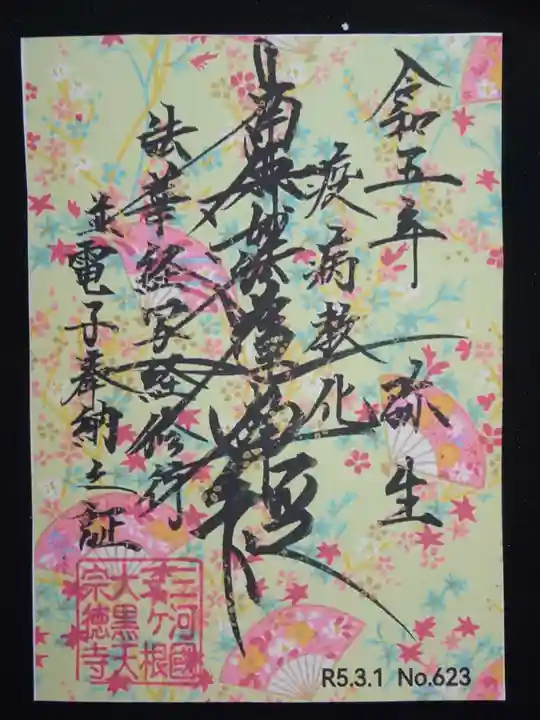 令和五年 弥生
疫病教化
南無妙法蓮華経
法華経写経修行
並電子奉納之証
三河國
三ヶ根
大黒天
宗徳寺
R5.3.1 No.623